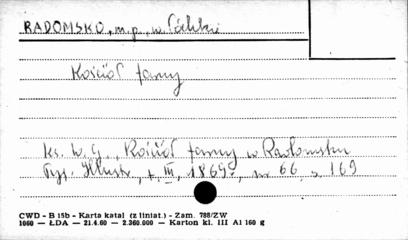 RADOMSKO, m.p., w. Łódzkie
Kościół farny
ks. W. G., Kościół farny w Radomsku
Tyg. Illustr., t. III, 1869, nr 66 s. 169
CWD - B 15b - Karta katal (z liniat.) - Zam. 788/ZW
1060 — ŁDA — 21.4.60 — 2.360.000 — Karton kl. III A1 160 g